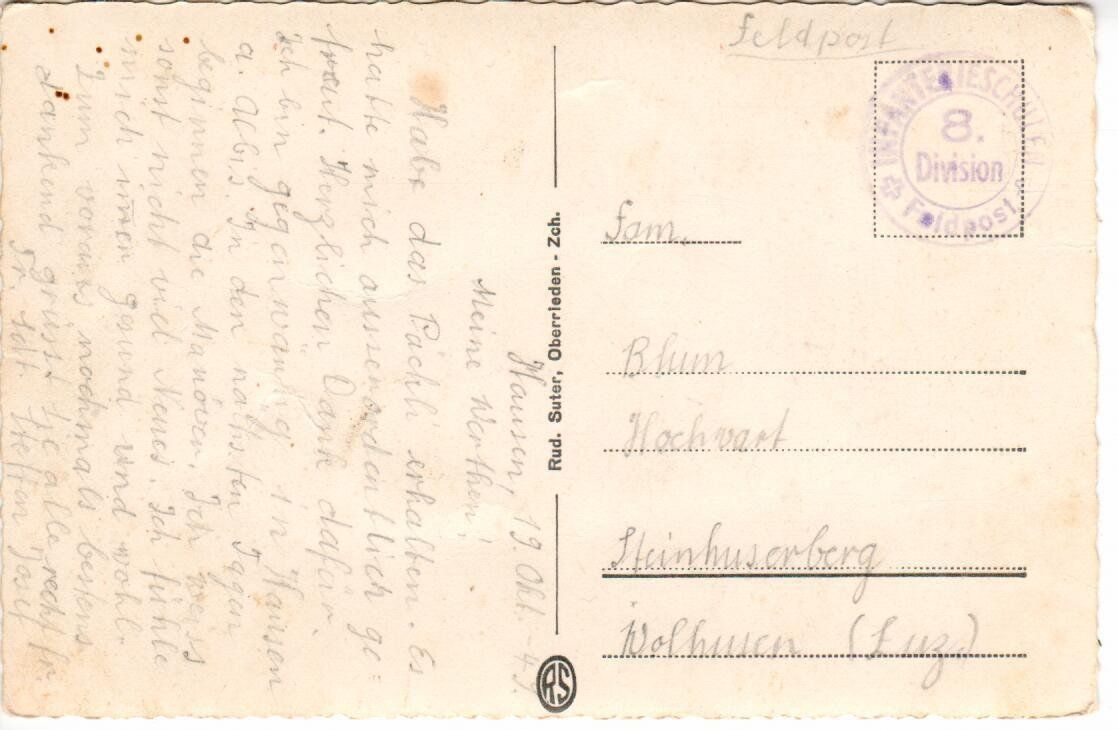 Feldpost
INFANTERIESCHULEN
8.
Division
Feldpost
Fam.
Blum
Hochwart
Steinhuserberg
Wolhusen (Luz.)
Rud. Suter, Oberrieden - Zch.
RS
Hausen, 19. Okt. 49.
Meine Werthen!
Habe das Päckli erhalten. Es
hatte mich ausserordentlich ge=
freut. Herzlichen Dank dafür.
Ich bin gegenwärtig in Hausen
a. Albis. In den nächsten Tagen
beginnen die Manöver. Ich weiss
sonst nicht viel Neues. Ich fühle
mich imen gesund und wohl.
Zum voraus nochmals bestens
Dankend grüsst Sie alle recht fr.
Tr. Sdt. Josef